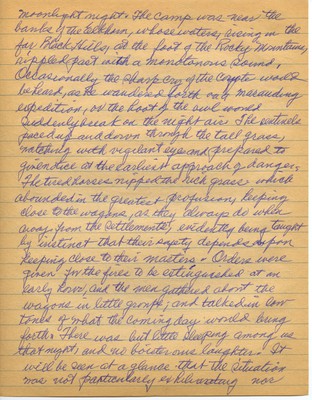 moonlight night. The camp was near the
banks of the Elkhorn, whose waters, rising in the
far Black Hills, at the foot of the Rocky Mountains,
rippled past with a monotonous sound,
Occasionally the sharp cry of the Coyote would
be heard, as he wandered forth on marauding
expedition, or the hoot of the owl would
suddenly break on the night air. The sentinels
paced up and down through the tall grass,
watching with vigilant eyes and prepared to
give notice at the earliest approach of danger.
The tired horses nipped the rich grass which
abounded in the greatest profusion, keeping
close to the wagons, as they always do when
away from the settlements, evidently being taught
by instinct that their safety depends upon
keeping close to their masters. Orders were
given for the fires to be extinguished at an
early hour, and the men gathered about the
wagons in little groups, and talked in low
tones of what the coming day would bring
forth. There was but little sleeping among us
that night, and no boisterous laughter. It
will be seen at a glance that the situation
was not particularly exhilarating nor